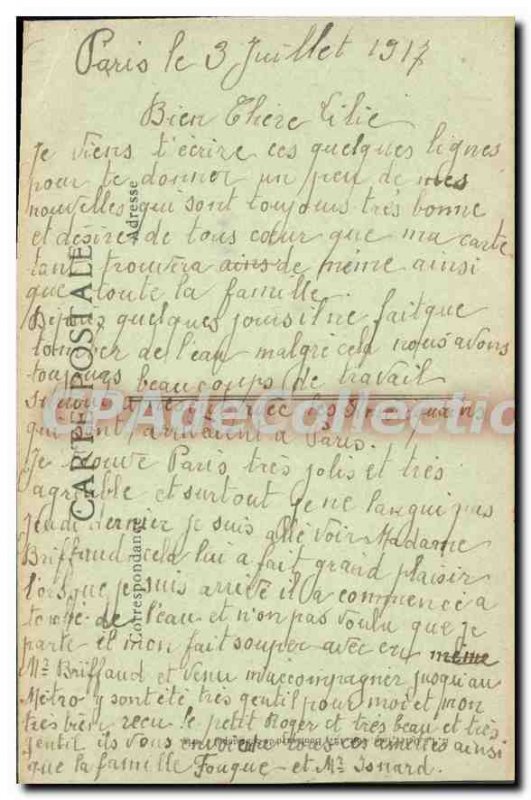 Paris le 3 Juillet 1917
Bien Chère Lilie
Je viens t'écrire ces quelques lignes
pour te donner un peu de mes
nouvelles qui sont toujours très bonne
et désire de tous cœur que ma carte
tant trouvera ains de même ainsi
que toute la famille.
Depuis quelques jours il ne fait que
tomber de l'eau malgré cela nous avons
toujours beaucoups de travail
surtout
qui sont arrivent à Paris.
Je trouve Paris très jolis et très
agréable et surtout je ne langui pas
Jeudi dernier je suis allé voir Madame
Briffaud cela lui a fait grand plaisir
lorsque je suis arrivé il a commencé a
tombé de l'eau et n'on pas voulu que je
parte et mon fait souper avec eu même
Mr Briffaud et venu m'accompagner jusqu'au
Métro y sont été très gentil pour moi et mon
très bien recu le petit Roger et très beau et très
gentil ils vous envoient toutes ces amitiés ainsi
que la famille Fouque et Mr Isnard.
CARTE POSTALE
Correspondance
Adresse
CPA De Collection